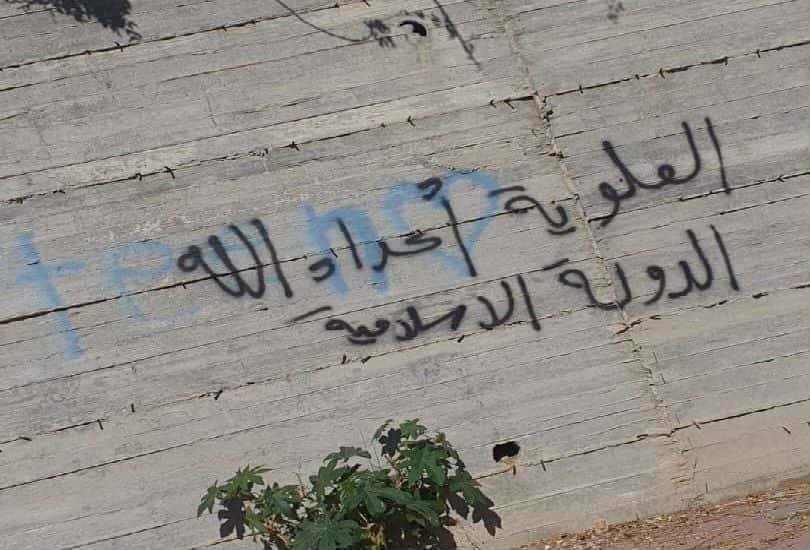 العلوية أعداء الله
الدولة الاسلامية